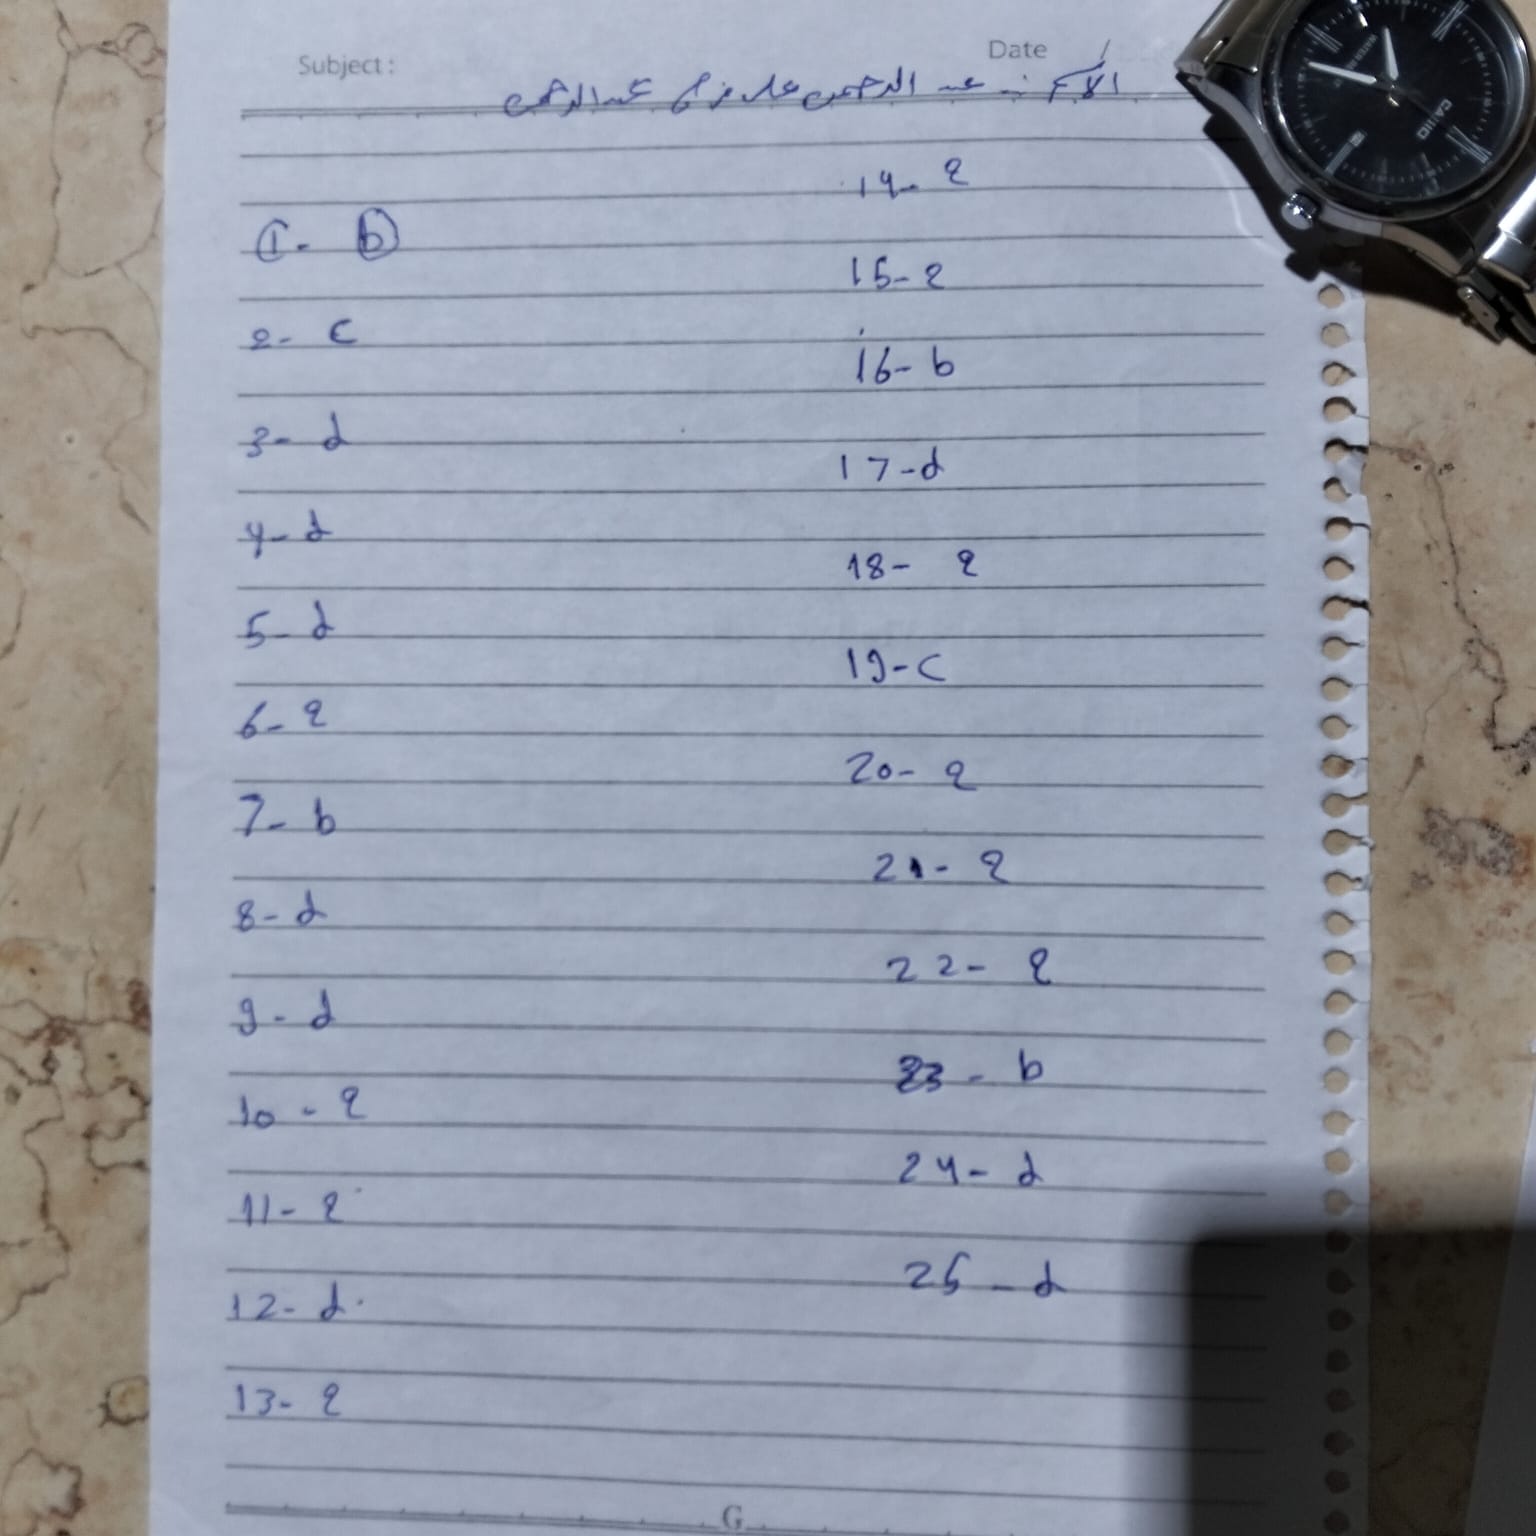 Subject:
Date /
الاسم :- عبد الرحمن عبد الرحمن
1- b
2- c
3- d
4- d
5- d
6- a
7- b
8- d
9- d
10- a
11- a
12- d
13- a
14- a
15- a
16- b
17- d
18- a
19- c
20- a
21- a
22- a
23- b
24- d
25- d
G
CASIO